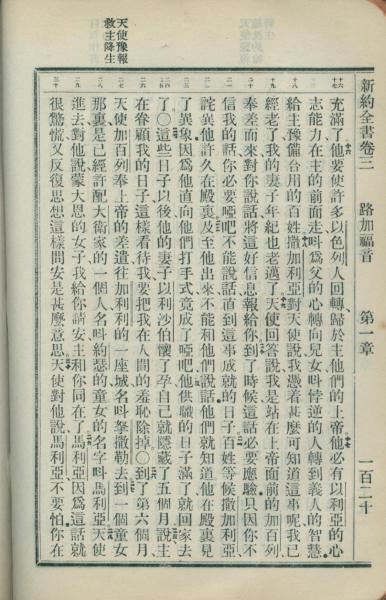 新約全書卷三 路加福音 第一章 一百二十
十六
十七
充滿了他要使許多以色列人回轉歸於主他們的上帝他必有以利亞的心
志能力在主的前面走呌爲父的心轉向兒女呌悖逆的人轉到義人的智慧
十八
給主豫備合用的百姓撒加利亞對天使說我憑着甚麼可知道這事呢我已
十九
經老了我的妻子年紀也老邁了天使回答說我是站在上帝面前的加百列
二十
奉差而來對你說話將這好信息報給你到了時候這話必要應驗只因你不
二一
信我的話你必要啞吧不能說話直到這事成就的日子百姓等候撒加利亞
二二
詫異他許久在殿裏及至他出來不能和他們說話他們就知道他在殿裏見
二三
了異象因爲他直向他們打手式竟成了啞吧他供職的日子滿了就回家去
二四
二五
了〇這些日子以後他的妻子以利沙伯懷了孕自己就隱藏了五個月說主
二六
在眷顧我的日子這樣看待我要把我在人間的羞恥除掉〇到了第六個月
二七
天使加百列奉上帝的差遣往加利利的一座城名呌拏撒勒去到一個童女
二八
那裏是已經許配大衛家的一個人名呌約瑟的童女的名字呌馬利亞天使
二九
進去對他說蒙大恩的女子我給你請安主和你同在了馬利亞因爲這話就
三十
很驚慌又反復思想這樣問安是甚麼意思天使對他說馬利亞不要怕你在
天使豫報
救主降生